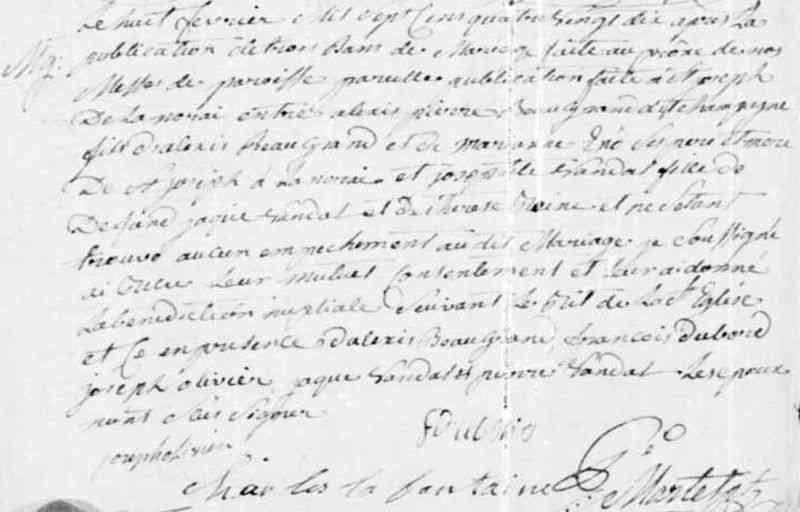 Le huit fevrier Mil sept Cens quatre vingt dix apres La
Mg: publication de trois Bans de Mariage faite au prône de nos
Messe de paroisse pareille publication faite a St joseph
De La norai entre alexis pierre BeauGrand dit champagne
fils d'alexis BeauGrand et de marianne Ses pere et mere
De St joseph de La norai et josephte Vandal fille de
Defund jaque Vandal et De therese et ne Setant
trouvé aucun empechement audit Mariage je Soussigné
ai recu Leur mutuel Consentement et Leur ai donné
La benediction nuptiale Suivant Le Rit de La Ste Eglise
et Ce en presence d'alexis BeauGrand, francois Dubord
joseph olivier jaque Vandal et pierre Vandal Les epoux
n'ont Sçus Signer
joseph olivier
Charles la fontaine